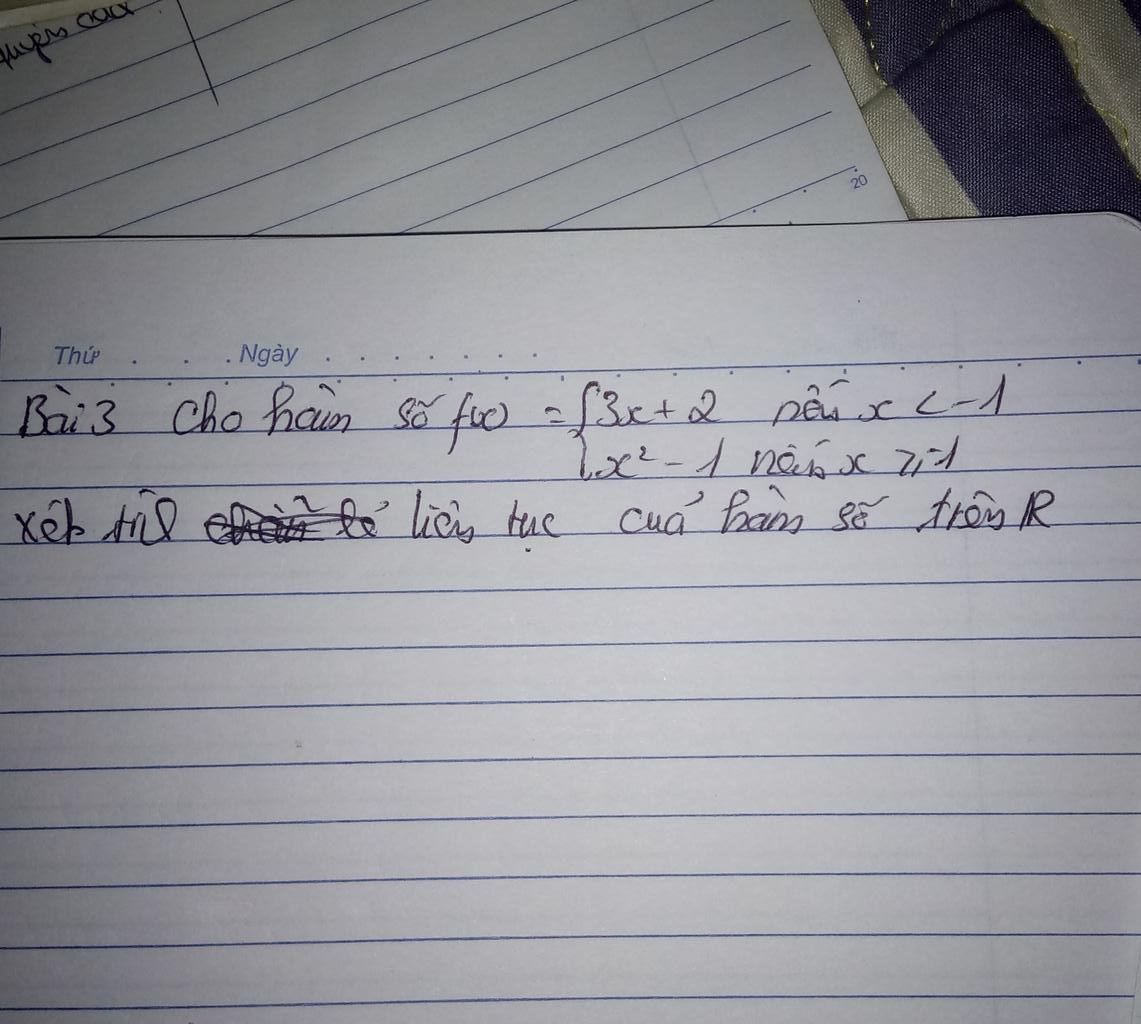 20
Thứ . . . Ngày . . . . . . .
Bài 3 Cho hàm số f(x) = { 3x + 2 nếu x < -1
x² - 1 nếu x ≥ -1
xét tính liên tục của hàm số trên R